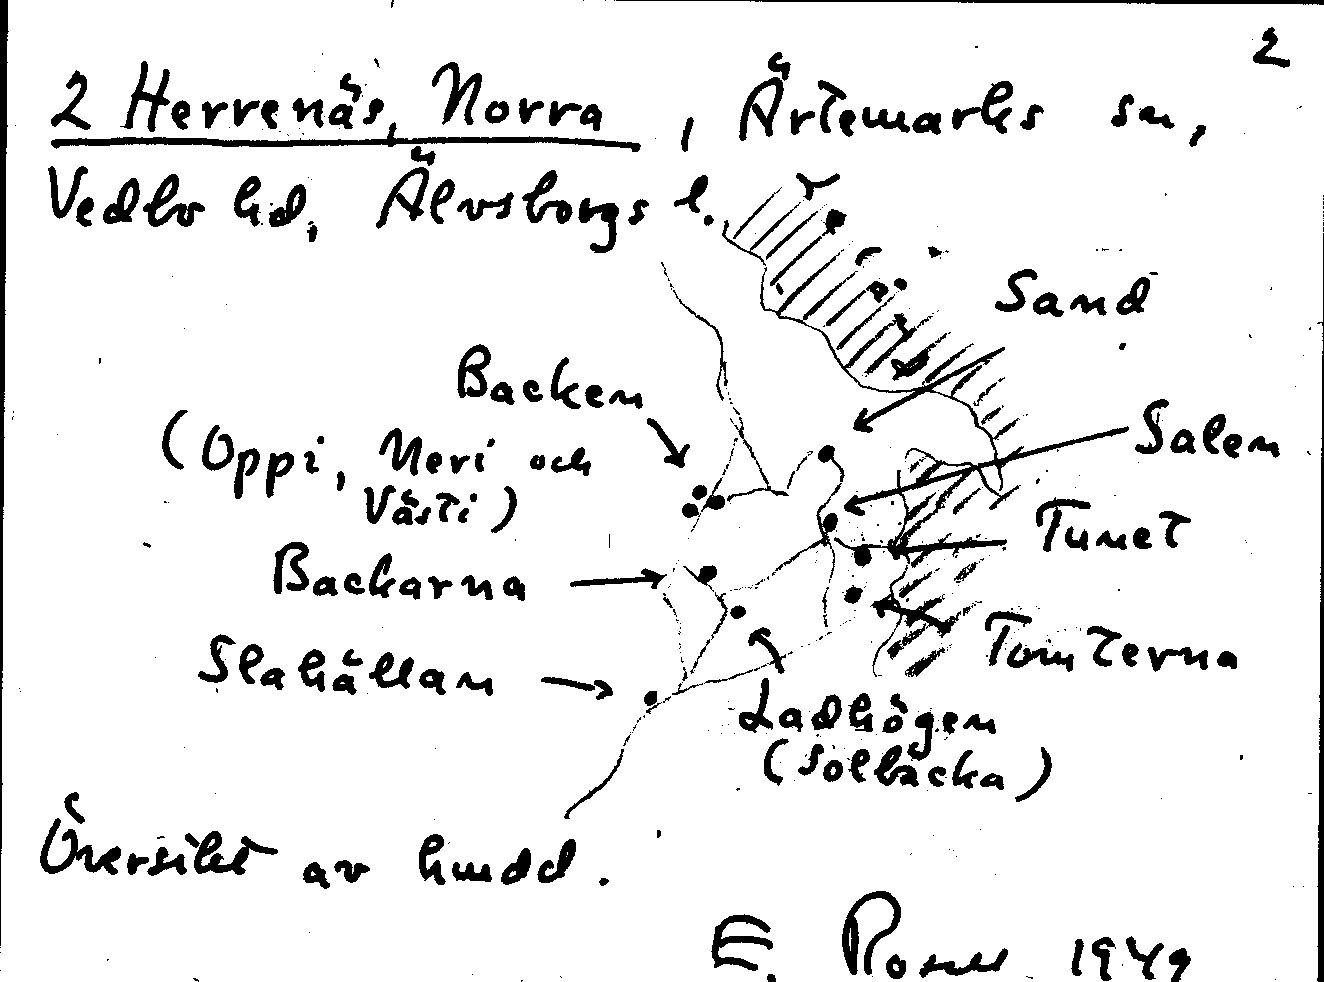 2
2 Herrenäs, Norra, Ärtemarks sn,
Vedbo hd, Älvsborgs l.
Sand
Backen
(Oppi, Neri och
Västi)
Salen
Tunet
Backarna
Tomterna
Slahällan
Ladhögen
(Solbacka)
Översikt av hmdd.
E. Rosell 1949